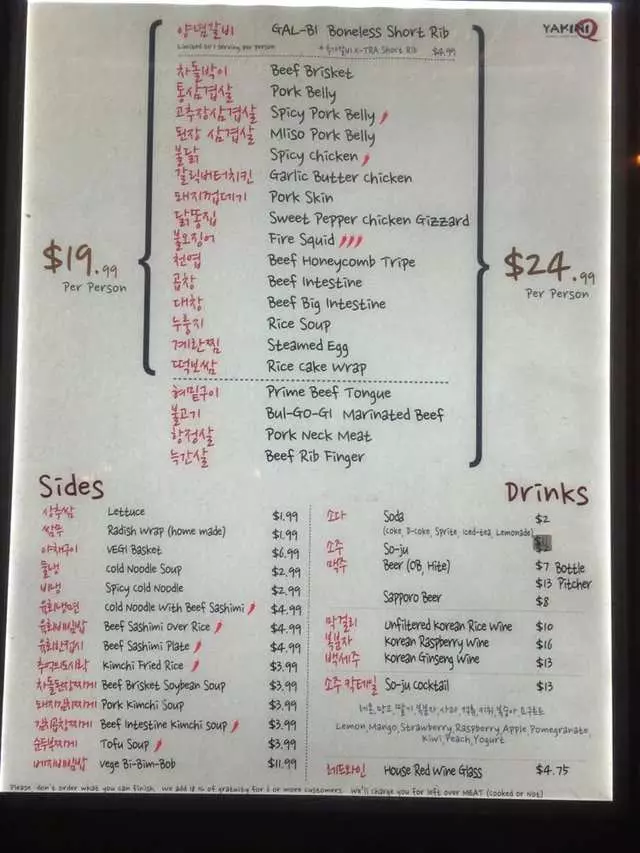 YAKINIQ
양념갈비 GAL-BI Boneless Short Rib
Limited to 1 serving per person + 추가갈비 X-TRA Short Rib $4.99
차돌박이 Beef Brisket
통삼겹살 Pork Belly
고추장삼겹살 Spicy Pork Belly
된장 삼겹살 Miso Pork Belly
불닭 Spicy Chicken
갈릭버터치킨 Garlic Butter Chicken
돼지껍데기 Pork Skin
닭똥집 Sweet Pepper Chicken Gizzard
불오징어 Fire Squid
천엽 Beef Honeycomb Tripe
곱창 Beef Intestine
대창 Beef Big Intestine
누룽지 Rice Soup
계란찜 Steamed Egg
떡보쌈 Rice Cake Wrap
$19.99
Per Person
혀밑구이 Prime Beef Tongue
불고기 Bul-Go-Gi Marinated Beef
항정살 Pork Neck Meat
늑간살 Beef Rib Finger
$24.99
Per Person
Sides
상추쌈 Lettuce $1.99
쌈무 Radish Wrap (home made) $1.99
야채구이 VEGI Basket $6.99
물냉 Cold Noodle Soup $2.99
비냉 Spicy Cold Noodle $2.99
육회냉면 Cold Noodle With Beef Sashimi $4.99
육회비빔밥 Beef Sashimi Over Rice $4.99
육회한접시 Beef Sashimi Plate $4.99
추억의도시락 Kimchi Fried Rice $3.99
차돌된장찌게 Beef Brisket Soybean Soup $3.99
돼지김치찌게 Pork Kimchi Soup $3.99
김치곱창찌게 Beef Intestine Kimchi Soup $3.99
순두부찌게 Tofu Soup $3.99
베지비빔밥 Vege Bi-Bim-Bob $11.99
Drinks
소다 Soda $2
(Coke, D-Coke, Sprite, Iced-tea, Lemonade)
소주 So-ju
맥주 Beer (OB, Hite) $7 Bottle
$13 Pitcher
Sapporo Beer $8
막걸리 Unfiltered Korean Rice Wine $10
복분자 Korean Raspberry Wine $16
백세주 Korean Ginseng Wine $13
소주 칵테일 So-ju Cocktail $13
레몬,망고,딸기,복분자,사과,석류,키위,복숭아,요구르트
Lemon,Mango,Strawberry,Raspberry,Apple,Pomegranate,
Kiwi,Peach,Yogurt
레드와인 House Red Wine Glass $4.75
Please, don't order what you can finish. We add 18% of gratuity for 6 or more customers. We'll charge you for left over MEAT (Cooked or Not)